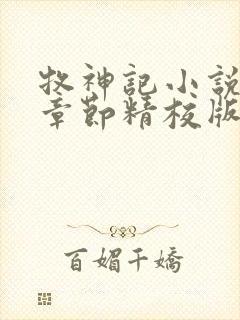 牧神記小說
章節精校版
百媚千嬌